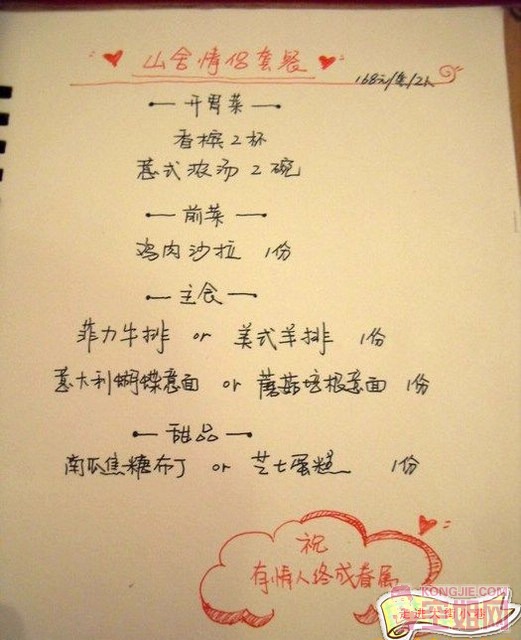 山舍情侣套餐
168元/套/2人
开胃菜
香槟2杯
意式浓汤2碗
前菜
鸡肉沙拉 1份
主食
菲力牛排 or 美式羊排 1份
意大利蝴蝶意面 or 蘑菇培根意面 1份
甜品
南瓜焦糖布丁 or 芝士蛋糕 1份
祝
有情人终成眷属
KONGJIE.COM
空姐网